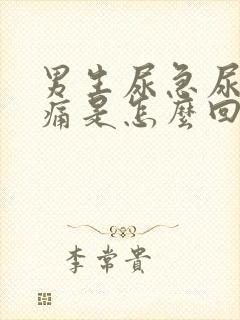 男生尿急尿
痛是怎麼回
李常貴